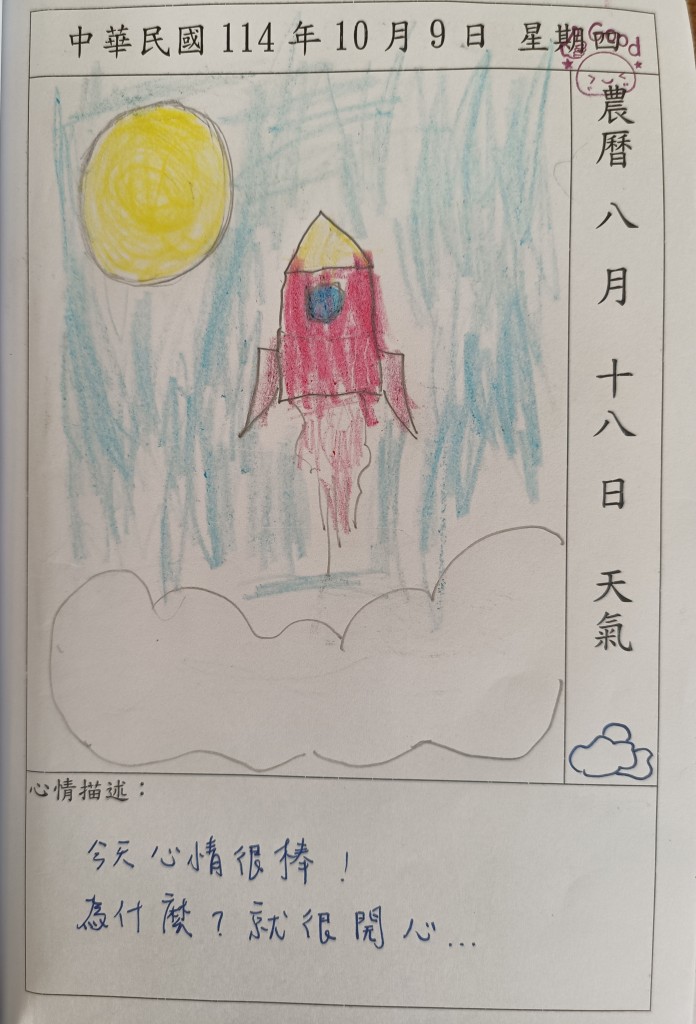 中華民國 114 年 10 月 9 日 星期四
Good
農曆 八 月 十八 日 天氣
心情描述：
今天心情很棒！
為什麼？就很開心...